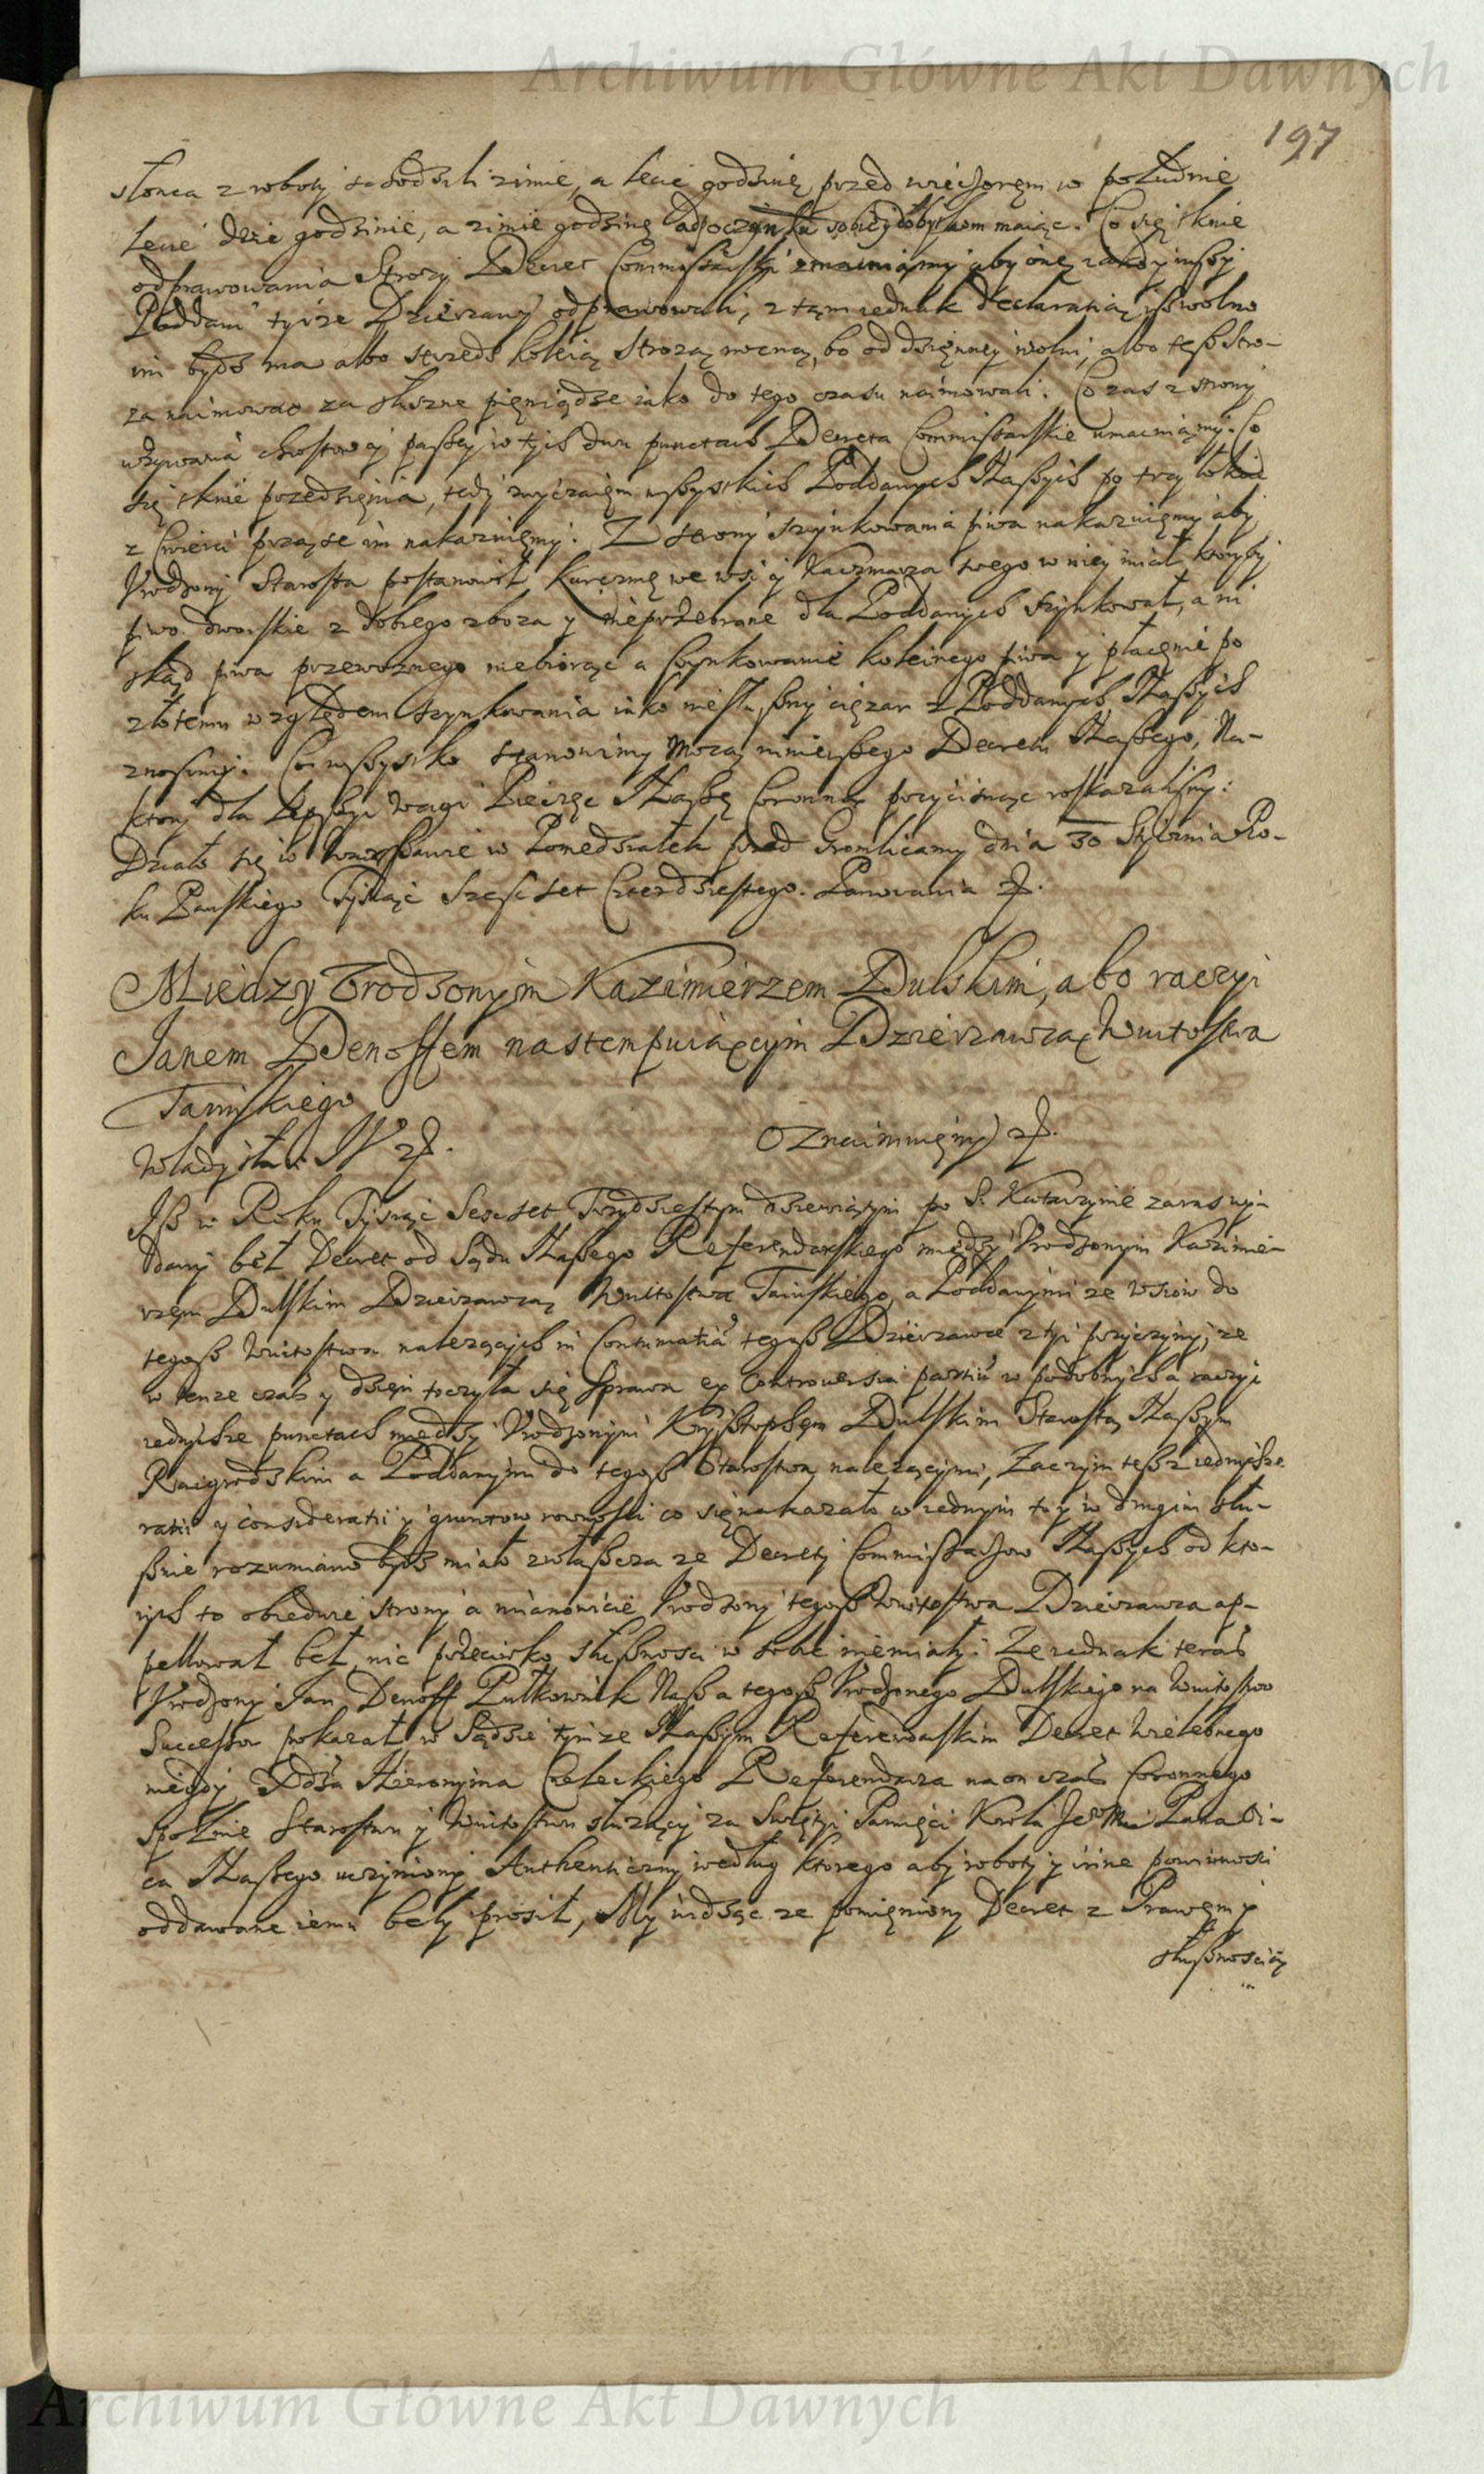 Archiwum Główne Akt Dawnych
197
słonca z roboty schodzili zimie, a lecie godzinę przed wieczorem w południe
lecie dwie godzinie, a zimie godzinę odpoczynku sobie y dobytkom maiąc. Co się tknie
odprawowania Stroży Decret Commissarski zmacniamy aby onę iako y inszy
Poddani tyize Dzierzawy odprawowali, z tym iednak declaratią isz wolno
im bydz ma albo strzedz koleią strożą nocną, bo od dzięnney wolni, albo tesz Stro-
za naimować za słuszne pięniądze iako do tego czasu naimowali. Co zas z strony
używania chrostow y paszey w tych dwu punctach Decreta Commissarskie umacniamy. Co
się tknie przedzięnia, tedy zwyczaięm wszystkich Poddanych Naszych po trzy łokcie
z Cwierci prząść im nakazuięmy. Z strony szynkowania piwa nakazuięmy aby
Urodzony Starosta postanowił karczmę we wsi y Kaczmarza swego w niey miał ktoryby
piwo dworskie z dobrego zboza y nieprzebrane dla Poddanych szynkował, a ni
skąd piwa przewoznego niebiorąc a szynkowanie koleinego piwa y płacęnie po
złotemu względem szynkowania iako niesłuszny cięzar z Poddanych Naszych
znosimy. Co wszystko stanowimy mocą ninieyszego Decretu Naszego, Na-
ktory dla lepszey wagi Pieczęc Naszę Coronną przycisnąc roskazalismy.
Działo się w Warszawie w Poniedziałek przed Gromnicamy dnia 30 Stycznia Ro-
ku Pańskiego Tysiąc Szesc set Czterdziestego. Panowania &.
Miedzy Urodzonym Kazimierzem Dulskim, abo raczyi
Janem Denoffem nastempuiącym Dzierzawcą Wuitostwa
Taniskiego
Władysław IV &.
Oznaimuięmy &.
Isz w Roku Tysiąc Sescset Trzydziestym dziewiątym po S. Katarzynie zaras wy-
dany beł Decret od Sądu Naszego Referendarskiego między Urodzonym Kazimie-
rzęm Dulskim Dzierzawcą Wuitostwa Taniskiego, a Poddanymi ze wsiow do
tegosz Wuitostwa nalezących in Contumatia tegosz Dzierzawce z tyi przyczyny, ze
w tenze czas y dzięn toczyła się sprawa ex Controuersia partiu w podobnych a raczyi
iednychze punctach między Urodzonym Krysztophęm Dulskim Starostą Naszym
Raigrodskim a Poddanymi do tegosz Starostwa nalezącymi, Zaczym tesz z iednychze
ratii y consideratii y gruntow rownosci co się nakazało w iednym to y w drugim słu-
sznie rozumiano bydz miało zwłaszcza ze Decrety Commissarzow Naszych od kto-
rych to obiedwie strony a mianowicie Urodzony tegosz Wuitostwa Dzierzawca ap-
pellował beł, nic przeciwko słusznosci w sobie niemiały. Ze iednak teras
Urodzony Jan Denoff Pułkownik Nasz a tegosz Urodzonego Dulskiego na Wuitostwo
Successor pokazał w Sądzie tymze Naszym Referendarskim Decret Wielebnego
niegdy Xdza Hieronyma Cieleckiego Referendarza na on czas Coronnego
spolnie Starostwu y Wuitostwu słuzący za Swiętyi Pamięci Krola Je° Mci Pana Oi-
ca Naszego uczyniony Authenticzny według ktorego aby roboty y inne powinnosci
oddawane iemu beły prosił, My widząc ze pomięniony Decret z Prawęm y
słusznoscią
Archiwum Główne Akt Dawnych